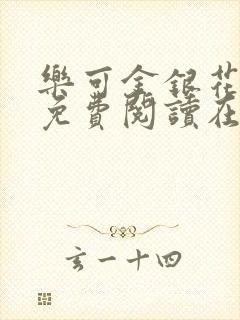 樂可金銀花
免費閱讀在
玄一十四